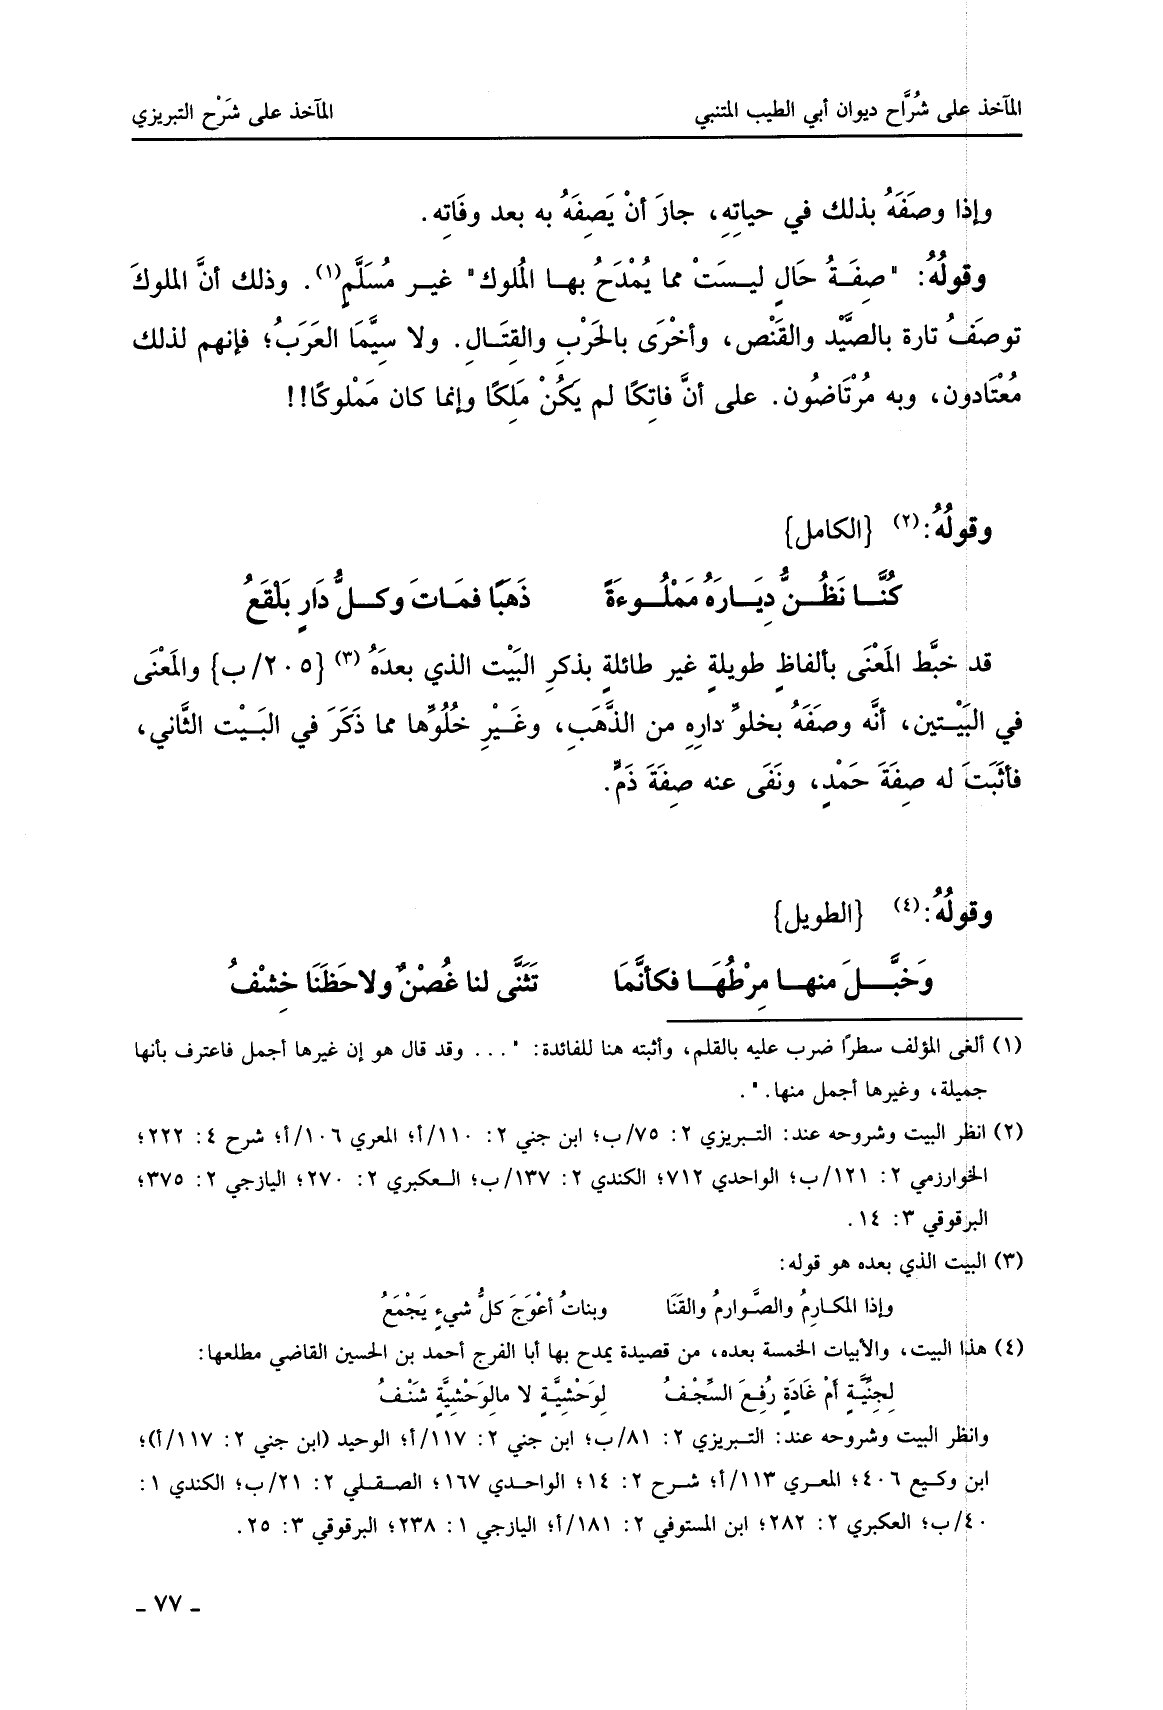 المآخذ على شُرَّاح ديوان أبي الطيب المتنبي المآخذ على شَرْح التبريزي
وإذا وصَفَهُ بذلك في حياتِهِ، جازَ أنْ يَصِفَهُ به بعد وفَاتِه.
وقولُهُ: "صِفَةُ حَالٍ ليسَتْ مما يُمْدَحُ بها الُملوك" غير مُسَلَّمٍ(١). وذلك أنَّ الملوكَ
توصَفُ تارة بالصَّيْد والقَنْص، وأخْرَى بالحَرْبِ والقِتَالِ. ولا سِيَّمَا العَرَبُ؛ فإنهم لذلك
مُعْتَادون، وبه مُرْتَاضُون. على أنَّ فاتِكًا لم يَكُنْ مَلِكًا وإنما كان مَمْلوكًا!!
وقولُهُ:(٢) {الكامل}
كُنَّا نَظُنُّ دِيَارَهُ مَمْلُوءةً ذَهَبًا فمَاتَ وكلُّ دَارٍ بَلْقَعُ
قد خبَّط المَعْنَى بألفاظٍ طويلةٍ غير طائلةٍ بذكرِ البَيْت الذي بعدَهُ(٣) {٢٠٥/ب} والمَعْنَى
في البَيْتين، أنَّه وصَفَهُ بخلوِّ دارِهِ من الذَّهَبِ، وغَيْرِ خُلُوِّها مما ذَكَرَ في البَيْت الثَّاني،
فأثَبَتَ له صِفَةَ حَمْدٍ، ونَفَى عنه صِفَةَ ذَمٍّ.
وقولُهُ:(٤) {الطويل}
وَخبَّلَ منها مِرْطُهَا فكأنَّمَا تَثَنَّى لنا غُصْنٌ ولاحَظَنَا خِشْفُ
(١) ألغى المؤلف سطرًا ضرب عليه بالقلم، وأثبته هنا للفائدة: "... وقد قال هو إن غيرها أجمل فاعترف بأنها
جميلة، وغيرها أجمل منها.".
(٢) انظر البيت وشروحه عند: التبريزي ٢: ٧٥/ب؛ ابن جني ٢: ١١٠/أ؛ المعري ١٠٦/أ؛ شرح ٤: ٢٢٢؛
الخوارزمي ٢: ١٢١/ب؛ الواحدي ٧١٢؛ الكندي ٢: ١٣٧/ب؛ العكبري ٢: ٢٧٠؛ اليازجي ٢: ٣٧٥؛
البرقوقي ٣: ١٤.
(٣) البيت الذي بعده هو قوله:
وإذا المكارِمُ والصَّوارمُ والقَنَا وبناتُ أعْوَجَ كلُّ شيءٍ يَجْمَعُ
(٤) هذا البيت، والأبيات الخمسة بعده، من قصيدة يمدح بها أبا الفرج أحمد بن الحسين القاضي مطلعها:
لِجنِّيَّةٍ أمْ غَادَةٍ رُفِعَ السِّجْفُ لِوَحْشِيَّةٍ لا مالِوَحْشِيَّةٍ شَنْفُ
وانظر البيت وشروحه عند: التبريزي ٢: ٨١/ب؛ ابن جني ٢: ١١٧/أ؛ الوحيد (ابن جني ٢: ١١٧/أ)؛
ابن وكيع ٤٠٦؛ المعري ١١٣/أ؛ شرح ٢: ١٤؛ الواحدي ١٦٧؛ الصقلي ٢: ٢١/ب؛ الكندي ١:
٤٠/ب؛ العكبري ٢: ٢٨٢؛ ابن المستوفي ٢: ١٨١/أ؛ اليازجي ١: ٢٣٨؛ البرقوقي ٣: ٢٥.
- ٧٧ -